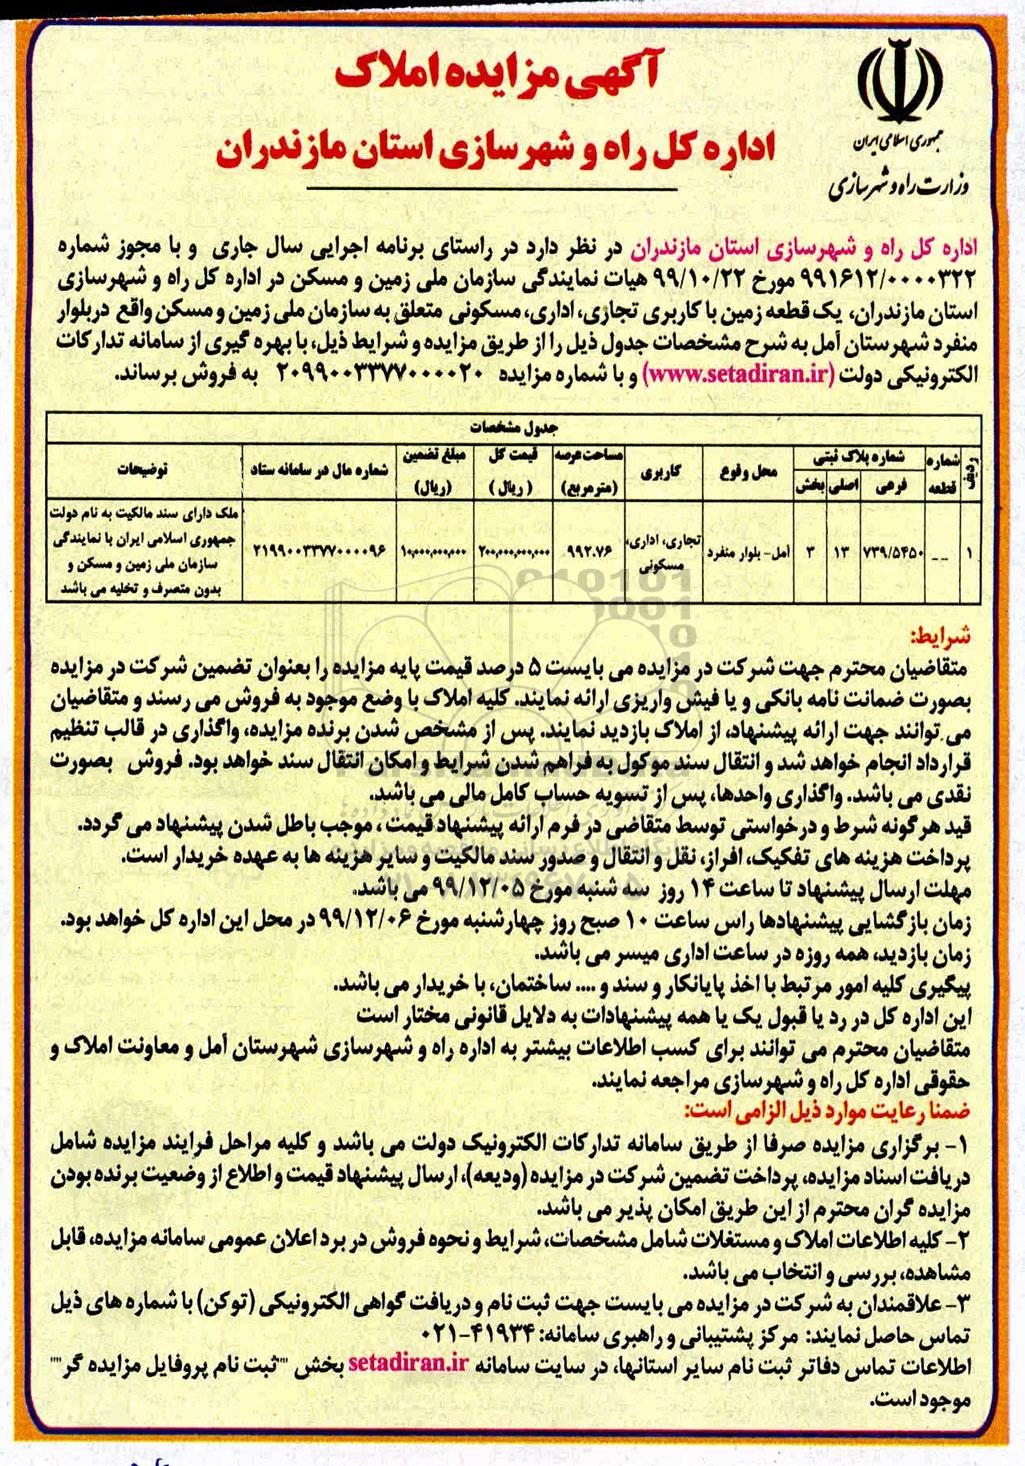 جمهوری اسلامی ایران
وزارت راه و شهرسازی
آگهی مزایده املاک
اداره کل راه و شهرسازی استان مازندران
اداره کل راه و شهرسازی استان مازندران در نظر دارد در راستای برنامه اجرایی سال جاری و با مجوز شماره
۹۹۱۶۱۲/۰۰۰۰۳۲۲ مورخ ۹۹/۱۰/۲۲ هیات نمایندگی سازمان ملی زمین و مسکن در اداره کل راه و شهرسازی
استان مازندران، یک قطعه زمین با کاربری تجاری، اداری، مسکونی متعلق به سازمان ملی زمین و مسکن واقع دربلوار
منفرد شهرستان آمل به شرح مشخصات جدول ذیل را از طریق مزایده و شرایط ذیل، با بهره گیری از سامانه تدارکات
الکترونیکی دولت (www.setadiran.ir) و با شماره مزایده ۲۰۹۹۰۰۳۳۷۷۰۰۰۰۲۰ به فروش برساند.
جدول مشخصات
ردیف | شماره قطعه | شماره پلاک ثبتی | محل وقوع | کاربری | مساحت عرصه (مترمربع) | قیمت کل (ریال) | مبلغ تضمین (ریال) | شماره مال در سامانه ستاد | توضیحات
فرعی | اصلی | بخش
۱ | -- | ۷۳۹/۵۴۵۰ | ۱۳ | ۳ | آمل- بلوار منفرد | تجاری، اداری، مسکونی | ۹۹۲.۷۶ | ۲۰۰,۰۰۰,۰۰۰,۰۰۰ | ۱۰,۰۰۰,۰۰۰,۰۰۰ | ۲۱۹۹۰۰۳۳۷۷۰۰۰۰۹۶ | ملک دارای سند مالکیت به نام دولت
جمهوری اسلامی ایران با نمایندگی
سازمان ملی زمین و مسکن و
بدون متصرف و تخلیه می باشد
شرایط:
متقاضیان محترم جهت شرکت در مزایده می بایست ۵ درصد قیمت پایه مزایده را بعنوان تضمین شرکت در مزایده
بصورت ضمانت نامه بانکی و یا فیش واریزی ارائه نمایند. کلیه املاک با وضع موجود به فروش می رسند و متقاضیان
می توانند جهت ارائه پیشنهاد، از املاک بازدید نمایند. پس از مشخص شدن برنده مزایده، واگذاری در قالب تنظیم
قرارداد انجام خواهد شد و انتقال سند موکول به فراهم شدن شرایط و امکان انتقال سند خواهد بود. فروش بصورت
نقدی می باشد. واگذاری واحدها، پس از تسویه حساب کامل مالی می باشد.
قید هرگونه شرط و درخواستی توسط متقاضی در فرم ارائه پیشنهاد قیمت، موجب باطل شدن پیشنهاد می گردد.
پرداخت هزینه های تفکیک، افراز، نقل و انتقال و صدور سند مالکیت و سایر هزینه ها به عهده خریدار است.
مهلت ارسال پیشنهاد تا ساعت ۱۴ روز سه شنبه مورخ ۹۹/۱۲/۰۵ می باشد.
زمان بازگشایی پیشنهادها راس ساعت ۱۰ صبح روز چهارشنبه مورخ ۹۹/۱۲/۰۶ در محل این اداره کل خواهد بود.
زمان بازدید، همه روزه در ساعت اداری میسر می باشد.
پیگیری کلیه امور مرتبط با اخذ پایانکار و سند و .... ساختمان، با خریدار می باشد.
این اداره کل در رد یا قبول یک یا همه پیشنهادات به دلایل قانونی مختار است
متقاضیان محترم می توانند برای کسب اطلاعات بیشتر به اداره راه و شهرسازی شهرستان آمل و معاونت املاک و
حقوقی اداره کل راه و شهرسازی مراجعه نمایند.
ضمنا رعایت موارد ذیل الزامی است:
۱- برگزاری مزایده صرفا از طریق سامانه تدارکات الکترونیک دولت می باشد و کلیه مراحل فرایند مزایده شامل
دریافت اسناد مزایده، پرداخت تضمین شرکت در مزایده (ودیعه)، ارسال پیشنهاد قیمت و اطلاع از وضعیت برنده بودن
مزایده گران محترم از این طریق امکان پذیر می باشد.
۲- کلیه اطلاعات املاک و مستغلات شامل مشخصات، شرایط و نحوه فروش در برد اعلان عمومی سامانه مزایده، قابل
مشاهده، بررسی و انتخاب می باشد.
۳- علاقمندان به شرکت در مزایده می بایست جهت ثبت نام و دریافت گواهی الکترونیکی (توکن) با شماره های ذیل
تماس حاصل نمایند: مرکز پشتیبانی و راهبری سامانه: ۴۱۹۳۴-۰۲۱
اطلاعات تماس دفاتر ثبت نام سایر استانها، در سایت سامانه setadiran.ir بخش ""ثبت نام پروفایل مزایده گر""
موجود است.